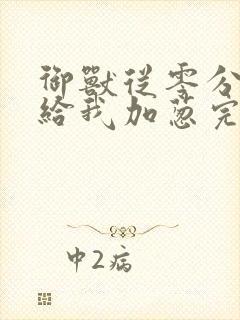 御獸從零分
給我加蔥完
中2病